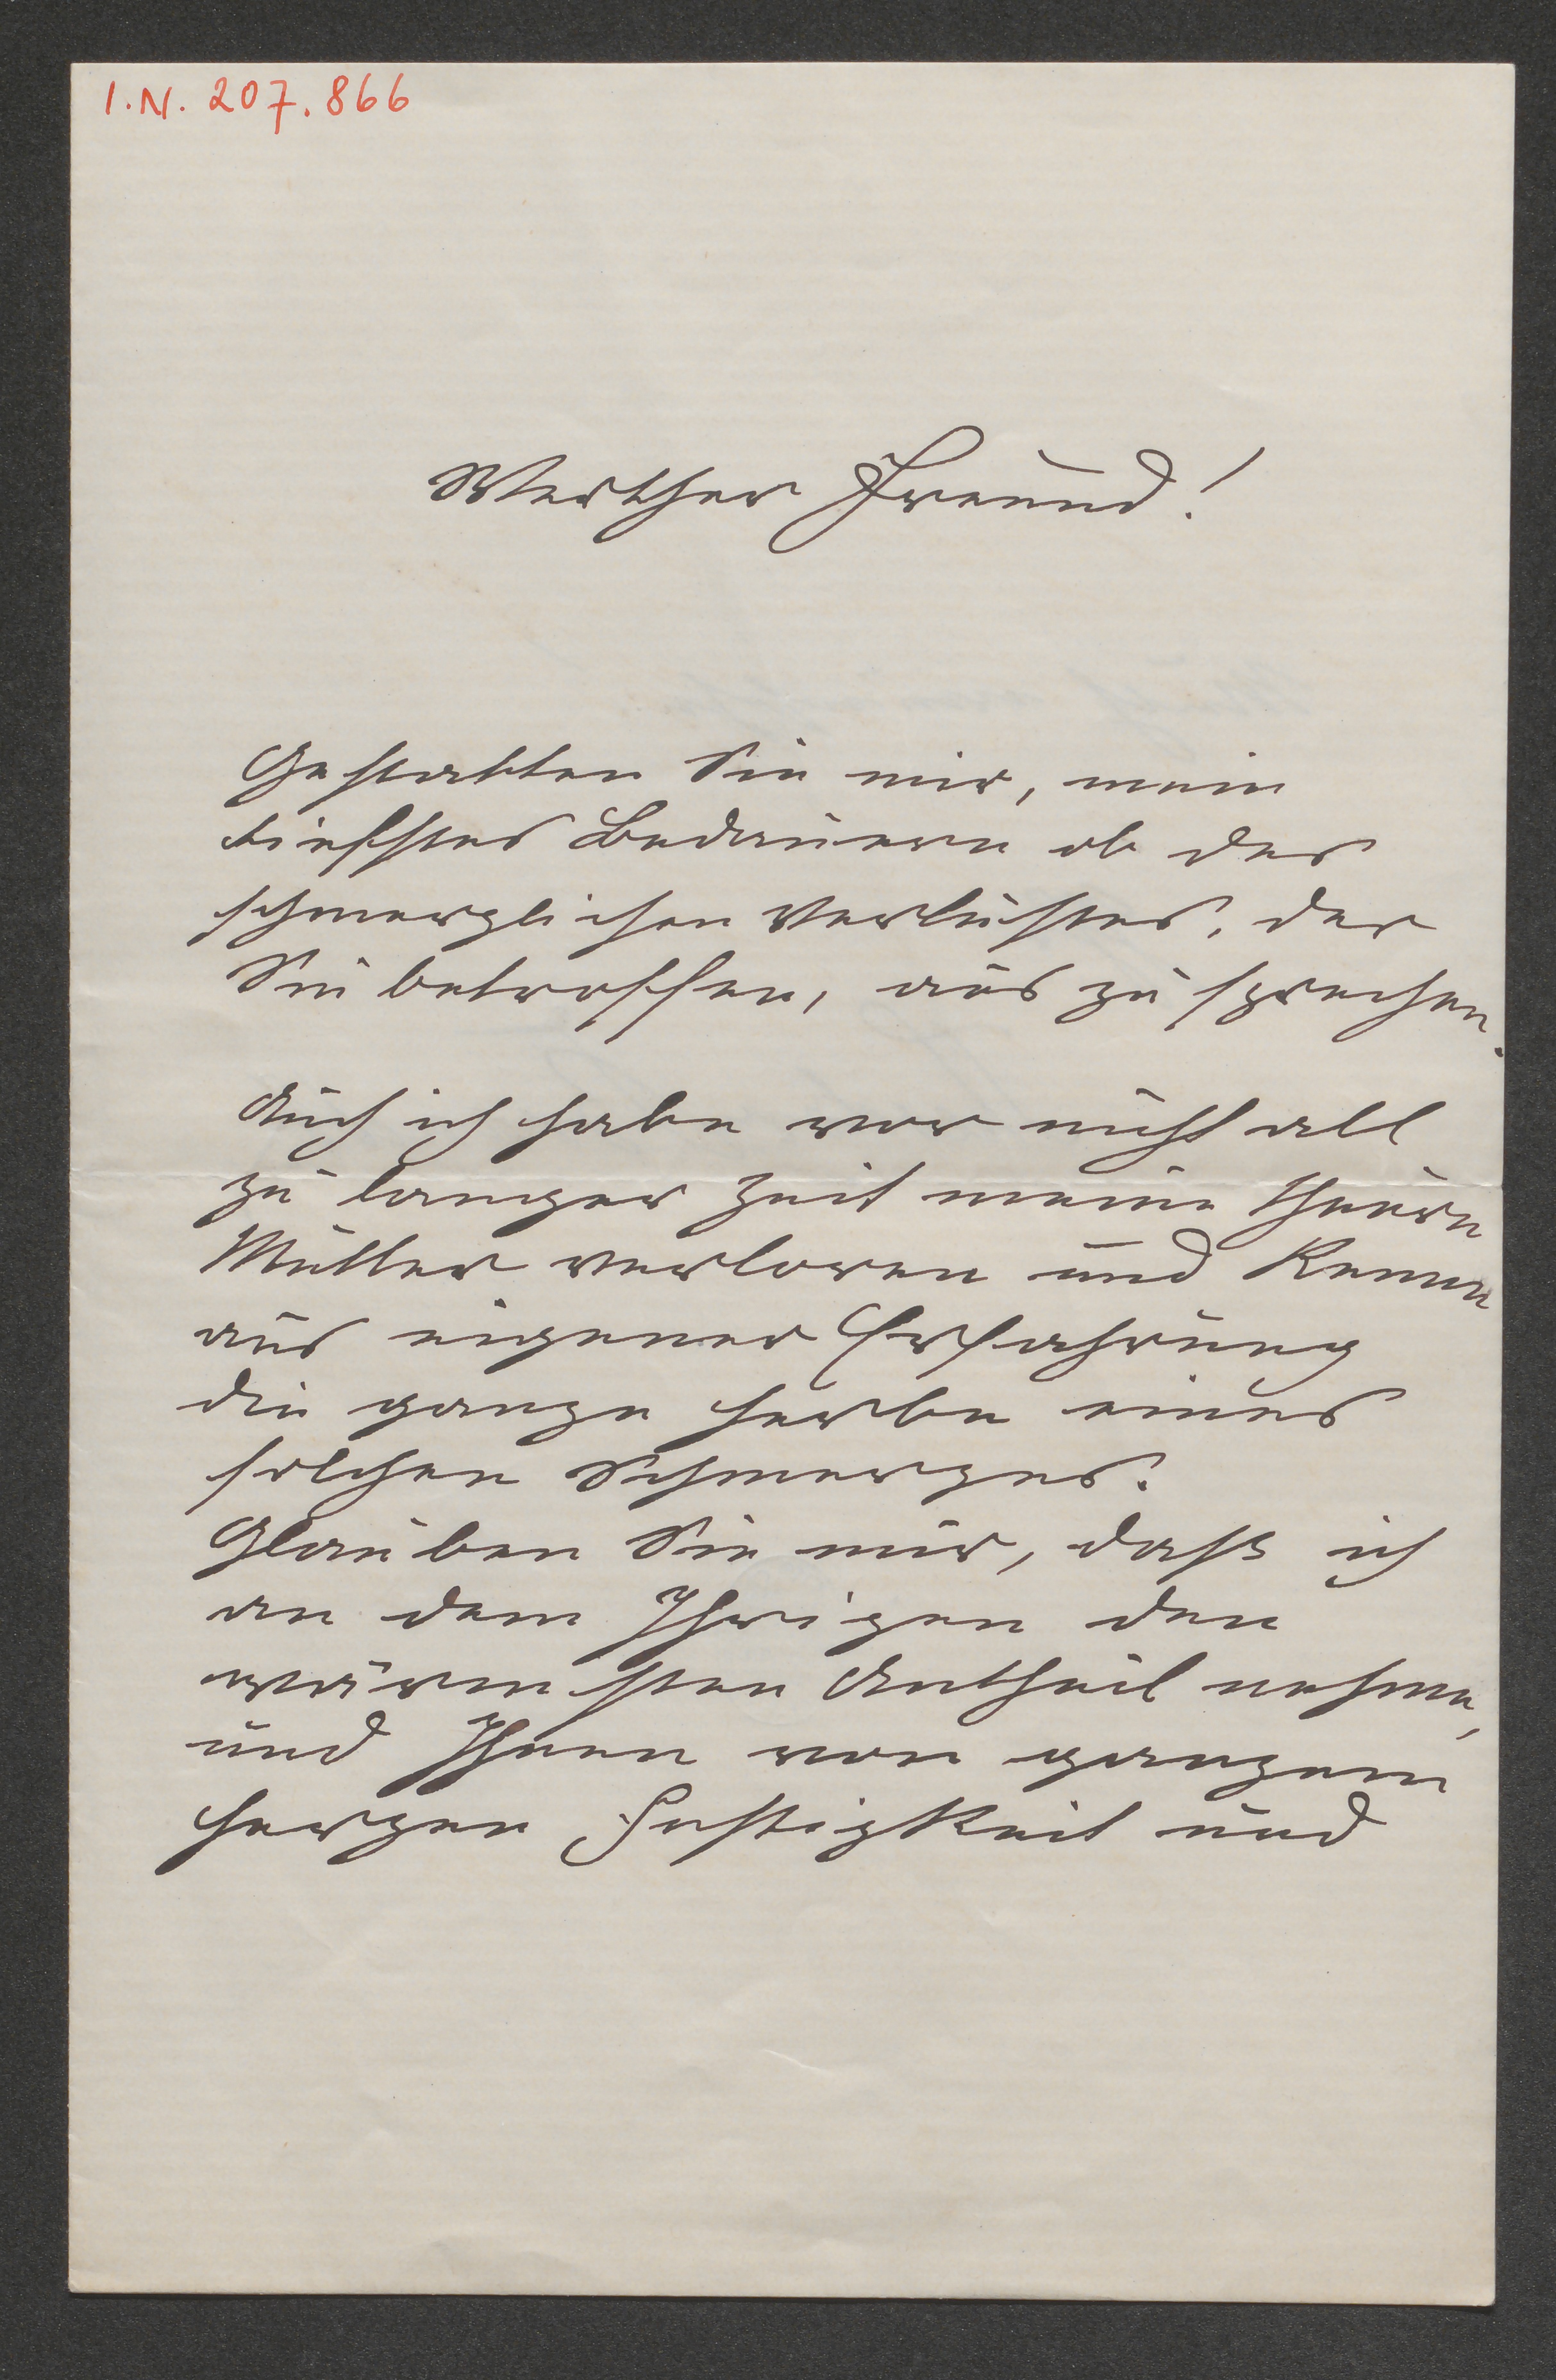 I.N. 207.866
Werther Freund!
Gestatten Sie mir, mein
tiefstes Bedauern ob des
schmerzlichen Verlustes, der
Sie betroffen, aus zu sprechen.
Auch ich habe vor nicht all
zu langer Zeit meine theure
Mutter verloren und kenne
aus eigener Erfahrung
die ganze Herbe eines
solchen Schmerzes.
Glauben Sie mir, daß ich
an dem Ihrigen den
wärmsten Antheil nehme,
und Ihnen von ganzem
Herzen Festigkeit und